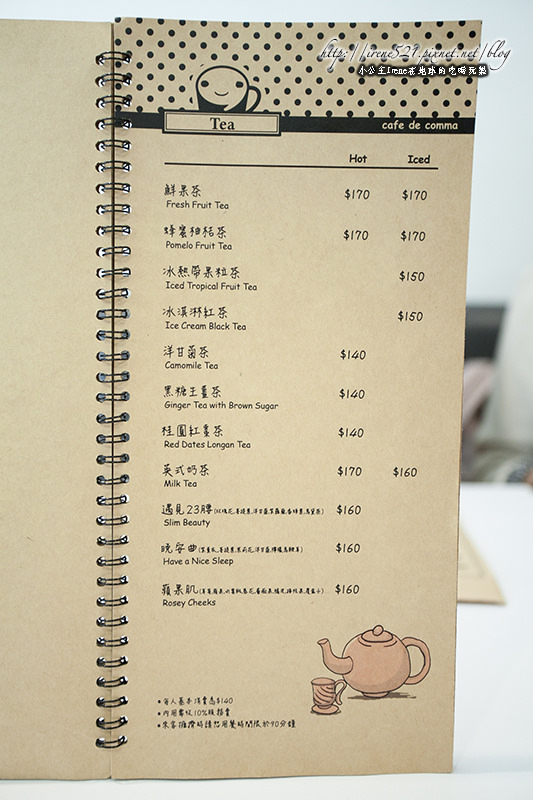 http://irene521.pixnet.net/blog
小公主Irene在地球的吃喝玩樂
Tea
cafe de comma
Hot Iced
鮮果茶 $170 $170
Fresh Fruit Tea
蜂蜜柚桔茶 $170 $170
Pomelo Fruit Tea
冰熱帶果粒茶 $150
Iced Tropical Fruit Tea
冰淇淋紅茶 $150
Ice Cream Black Tea
洋甘菊茶 $140
Camomile Tea
黑糖王薑茶 $140
Ginger Tea with Brown Sugar
桂圓紅棗茶 $140
Red Dates Longan Tea
英式奶茶 $170 $160
Milk Tea
遇見23腰 $160
Slim Beauty
晚安曲 $160
Have a Nice Sleep
蘋果肌 $160
Rosey Cheeks
•每人基本消費為$140
•內用需收10%服務費
•來客擁擠時請您用餐時間限於90分鐘